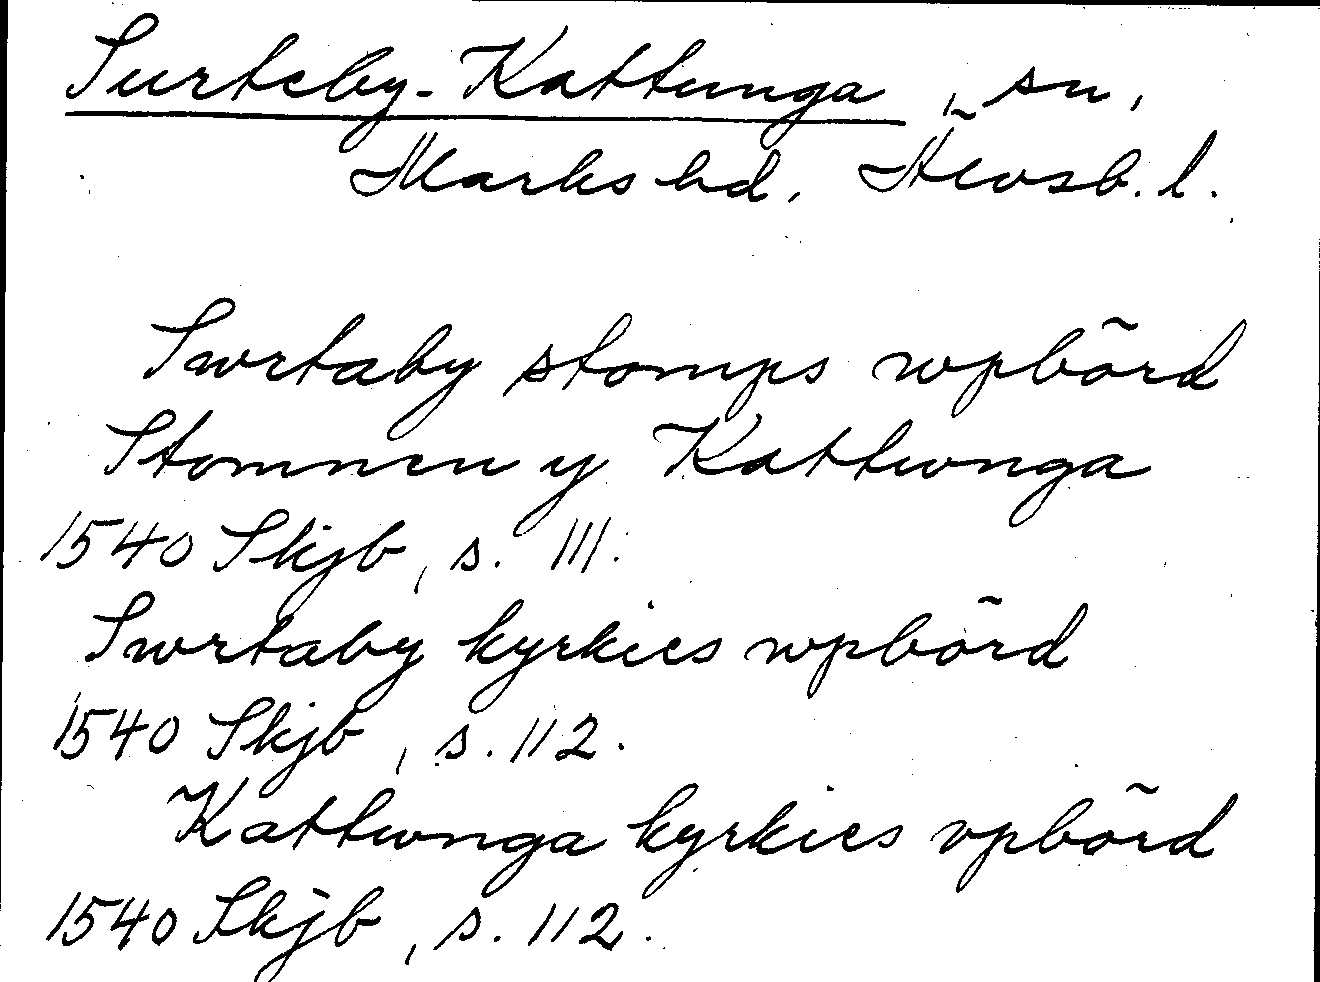 Surteby-Kattunga, sn,
Marks hd, Älvsb. l.
Swrtaby stomps wpbörd
Stomnen y Kattwnga
1540 Skjb, s. 111.
Swrtaby kyrkies wpbörd
1540 Skjb, s. 112.
Kattwnga kyrkies vpbörd
1540 Skjb, s. 112.